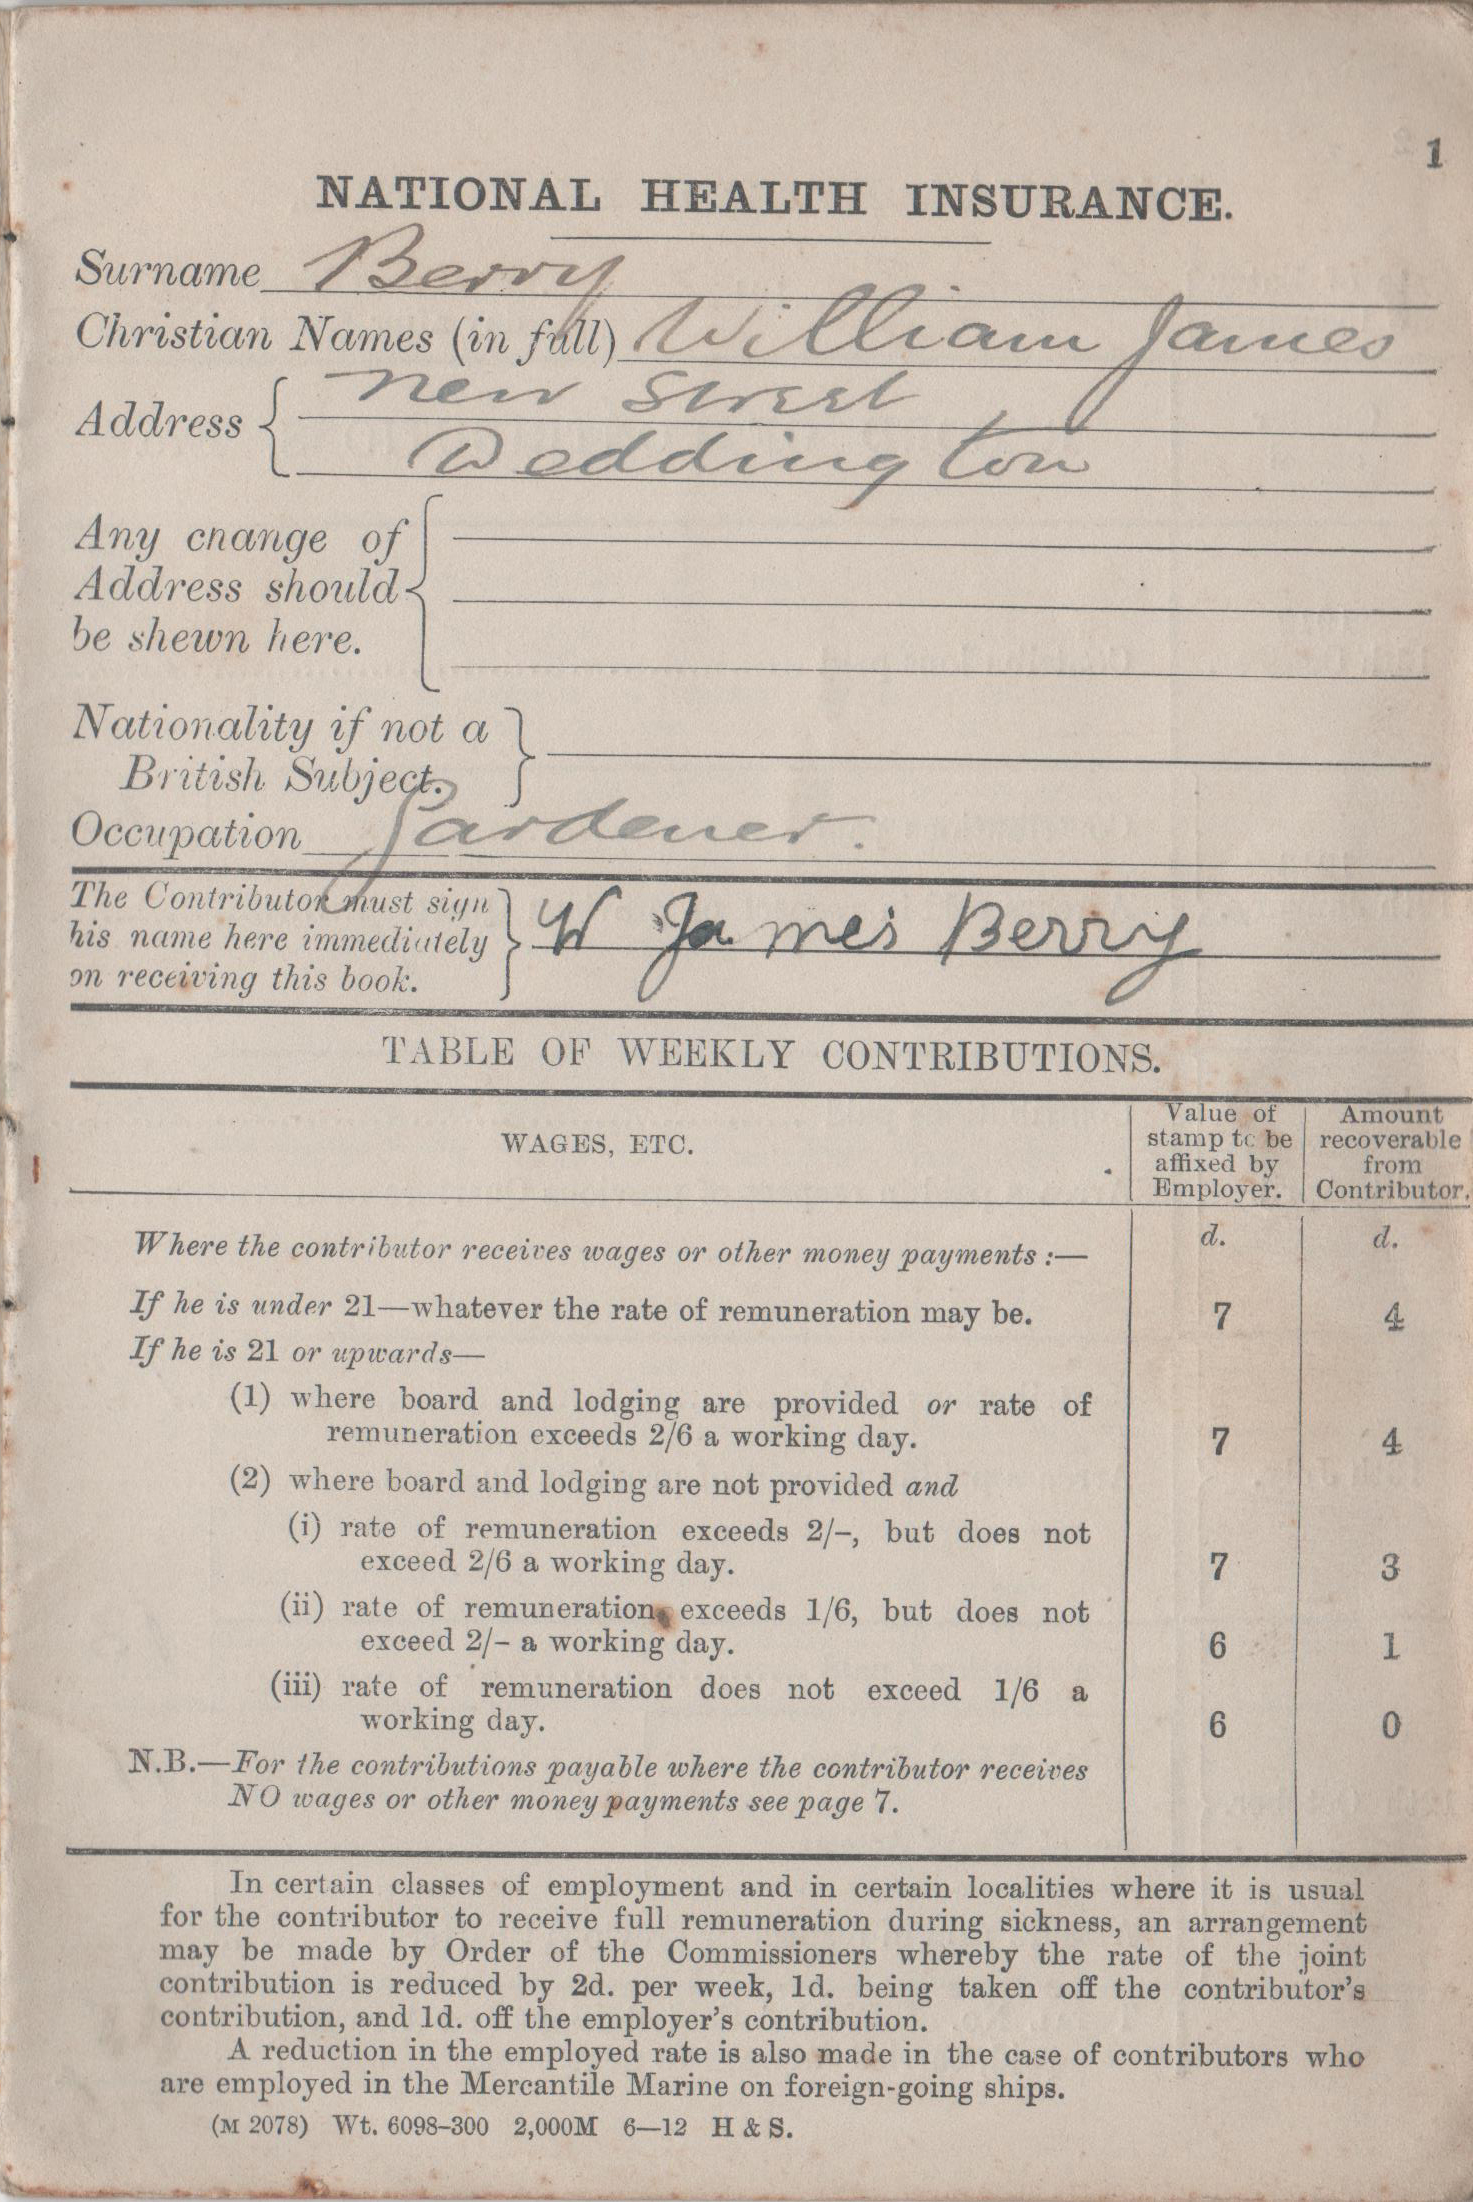 1
NATIONAL HEALTH INSURANCE.
Surname Berry
Christian Names (in full) William James
Address New Street
Deddington
Any change of
Address should
be shewn here.
Nationality if not a
British Subject.
Occupation Gardener.
The Contributor must sign
his name here immediately
on receiving this book.
W James Berry
TABLE OF WEEKLY CONTRIBUTIONS.
WAGES, ETC.
Value of
stamp to be
affixed by
Employer.
Amount
recoverable
from
Contributor.
d. d.
Where the contributor receives wages or other money payments :—
If he is under 21—whatever the rate of remuneration may be. 7 4
If he is 21 or upwards—
(1) where board and lodging are provided or rate of
remuneration exceeds 2/6 a working day. 7 4
(2) where board and lodging are not provided and
(i) rate of remuneration exceeds 2/–, but does not
exceed 2/6 a working day. 7 3
(ii) rate of remuneration exceeds 1/6, but does not
exceed 2/– a working day. 6 1
(iii) rate of remuneration does not exceed 1/6 a
working day. 6 0
N.B.—For the contributions payable where the contributor receives
NO wages or other money payments see page 7.
In certain classes of employment and in certain localities where it is usual
for the contributor to receive full remuneration during sickness, an arrangement
may be made by Order of the Commissioners whereby the rate of the joint
contribution is reduced by 2d. per week, 1d. being taken off the contributor's
contribution, and 1d. off the employer's contribution.
A reduction in the employed rate is also made in the case of contributors who
are employed in the Mercantile Marine on foreign-going ships.
(M 2078) Wt. 6098–300 2,000M 6—12 H & S.